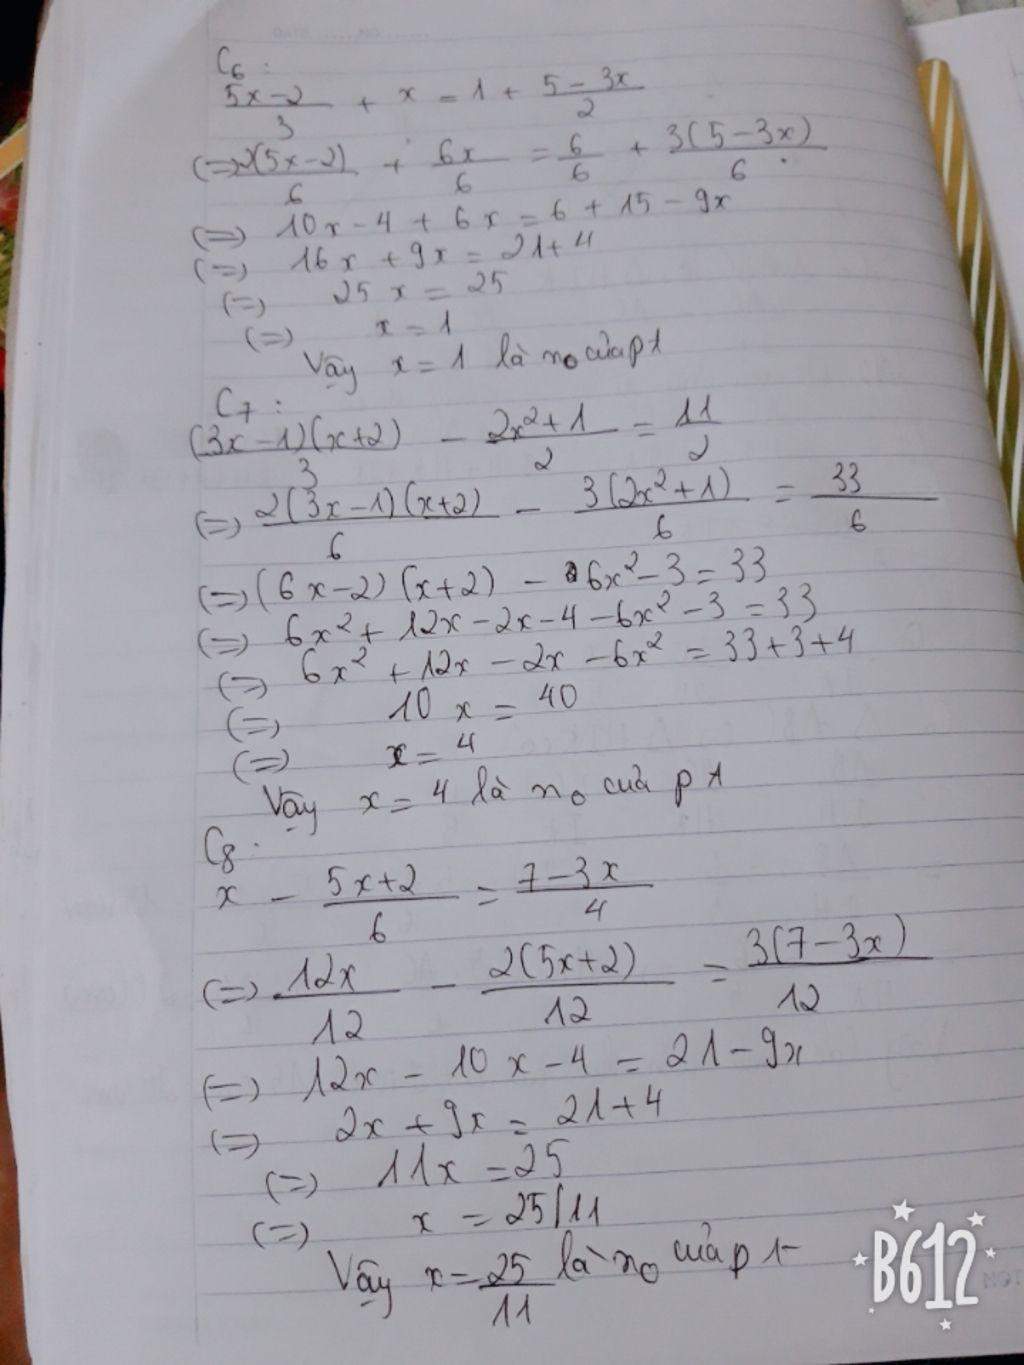 C6:
(5x-2)/3 + x = 1 + (5-3x)/2
(=) 2(5x-2)/6 + 6x/6 = 6/6 + 3(5-3x)/6
(=) 10x - 4 + 6x = 6 + 15 - 9x
(=) 16x + 9x = 21+4
(=) 25x = 25
(=) x = 1
Vậy x = 1 là no của p1
C7:
(3x-1)(x+2)/3 - (2x²+1)/2 = 11/2
(=) 2(3x-1)(x+2)/6 - 3(2x²+1)/6 = 33/6
(=) (6x-2)(x+2) - 6x² - 3 = 33
(=) 6x² + 12x - 2x - 4 - 6x² - 3 = 33
(=) 6x² + 12x - 2x - 6x² = 33+3+4
(=) 10x = 40
(=) x = 4
Vậy x = 4 là no của p1
C8:
x - (5x+2)/6 = (7-3x)/4
(=) 12x/12 - 2(5x+2)/12 = 3(7-3x)/12
(=) 12x - 10x - 4 = 21 - 9x
(=) 2x + 9x = 21+4
(=) 11x = 25
(=) x = 25/11
Vậy x = 25/11 là no của p1
B612